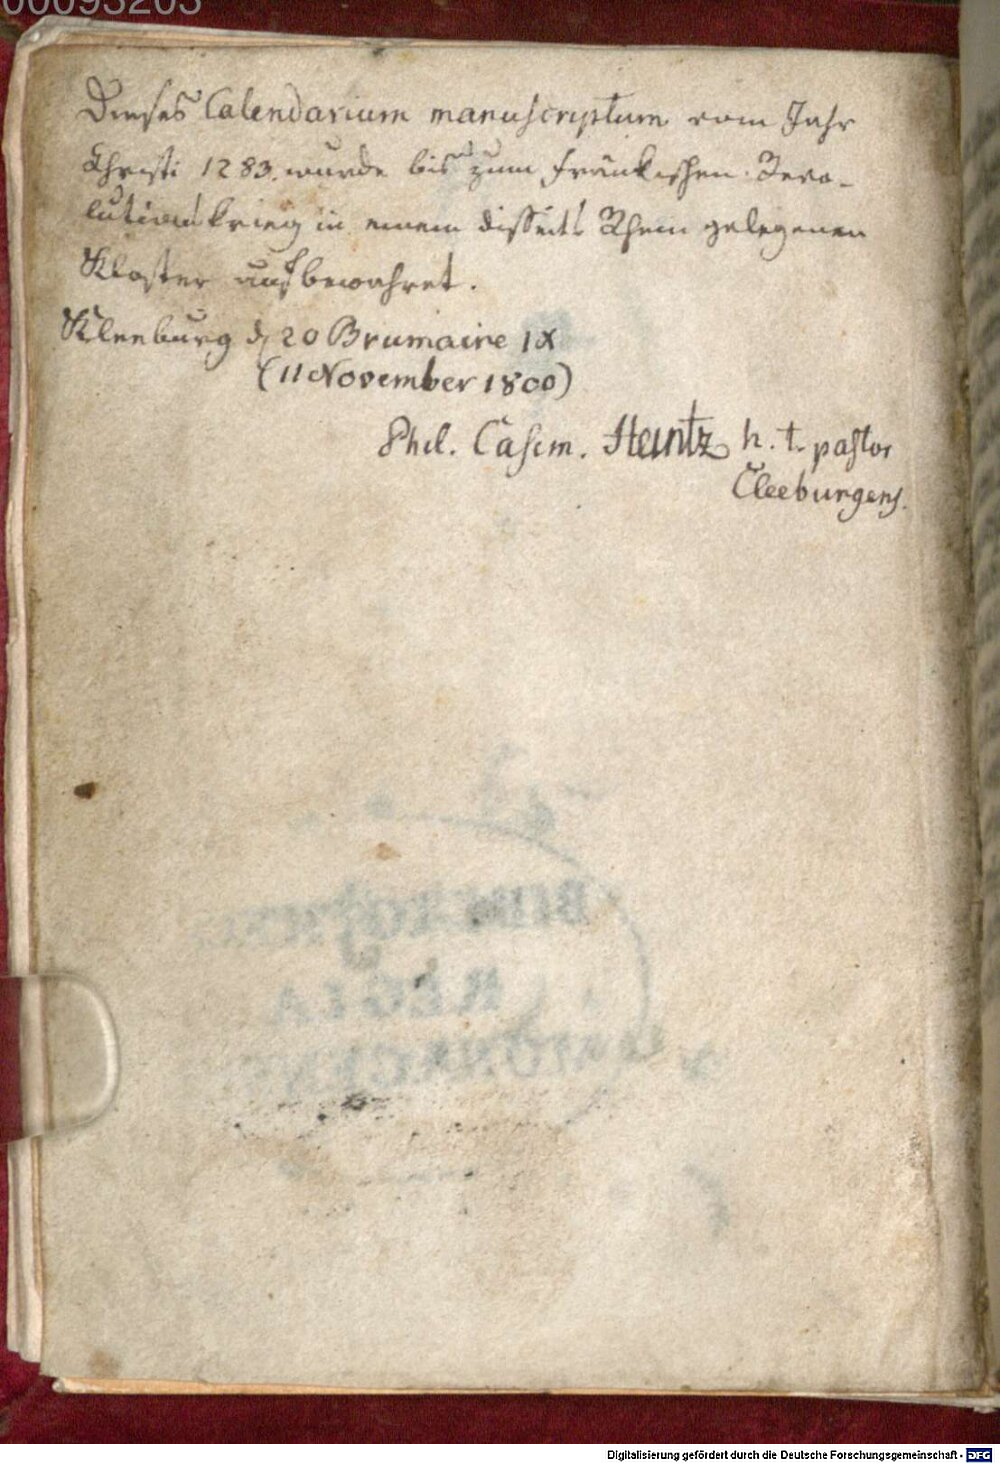 00093203
Dieses Calendarium manuscriptum vom Jahr
Christi 1283. wurde bis zum fränkischen Revo-
lutionskrieg in einem disseits Rhein gelegenen
Kloster aufbewahret.
Kleeburg d. 20 Brumaire IX
(11 November 1800)
Phil. Casim. Heintz h. t. pastor
Cleeburgens.
REGIA
Digitalisierung gefördert durch die Deutsche Forschungsgemeinschaft - DFG